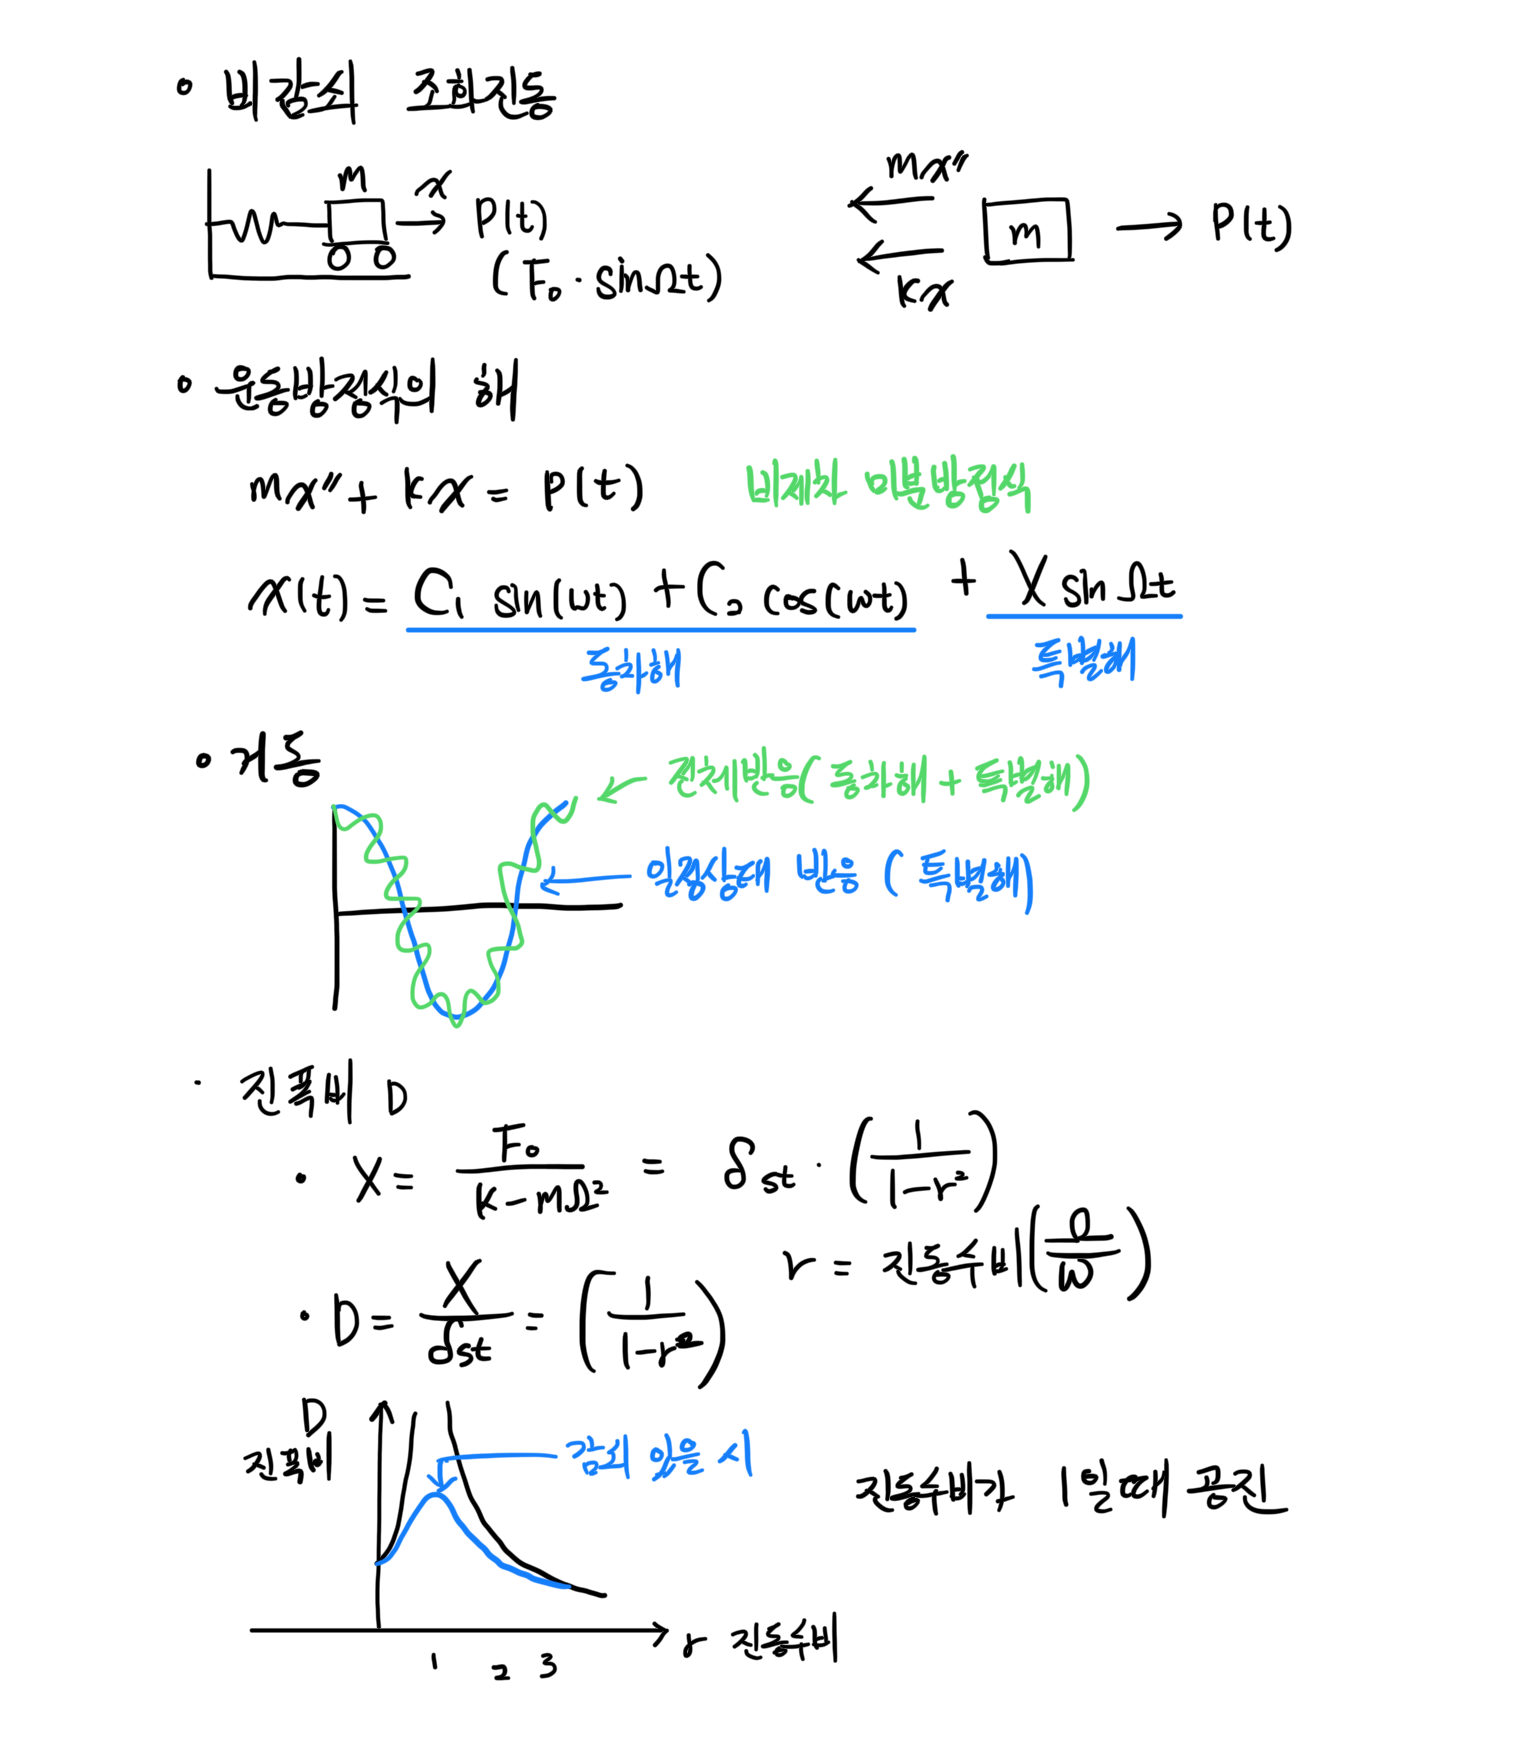 • 비감쇠 조화진동
m x P(t)
(F₀ · sinΩt)
mx″
kx
m → P(t)
• 운동방정식의 해
mx″ + kx = P(t) 비제차 미분방정식
x(t) = C₁ sin(ωt) + C₂ cos(ωt) + X sinΩt
동차해 특별해
• 거동
← 전체반응( 동차해 + 특별해)
← 일정상태 반응 ( 특별해)
· 진폭비 D
• X = F₀/(k - mΩ²) = δst · (1/(1-r²))
r = 진동수비(Ω/ω)
• D = X/δst = (1/(1-r²))
D
진폭비
감쇠 있을 시
진동수비가 1일때 공진
r 진동수비
1 2 3